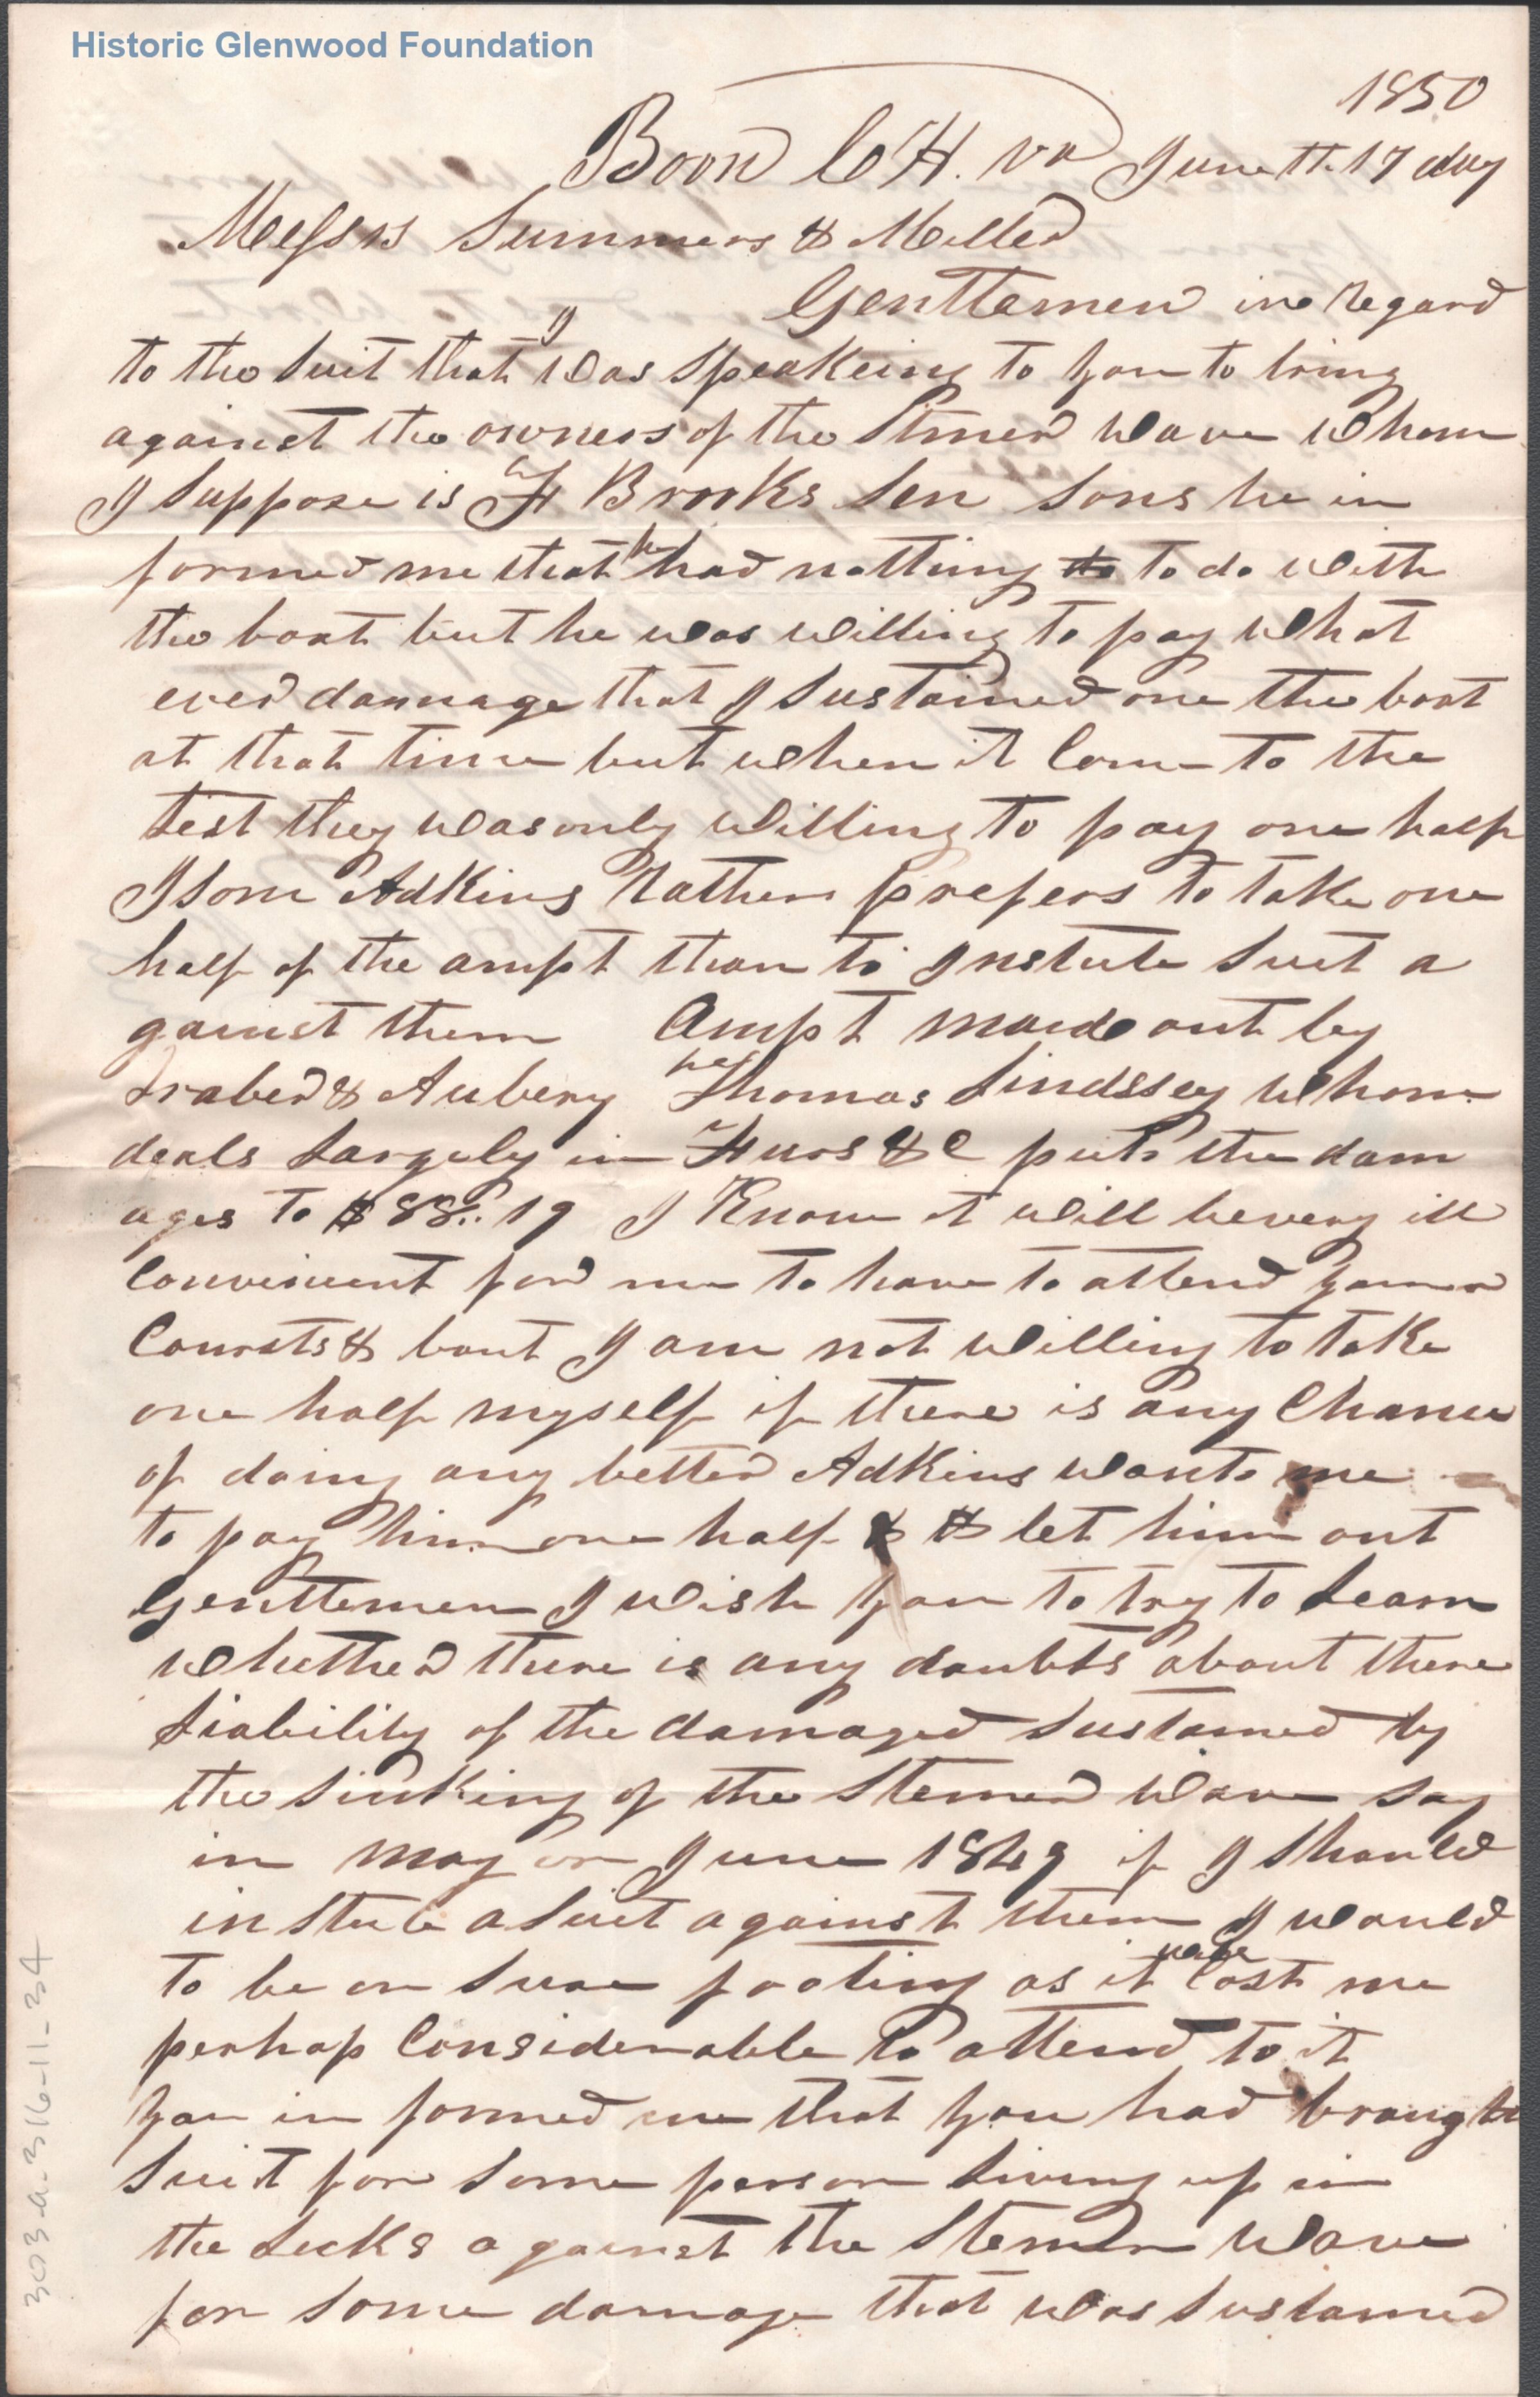 Historic Glenwood Foundation
1850
Boon C H. va June th. 17 day
Messrs Summers & Miller
Gentlemen in regard
to the suit that I was speakeing to you to bring
against the owners of the Stmer Wave whom
I suppose is F Brooks Sen Sons he in
formed me that he had nothing to to do with
the boat but he was willing to pay what
ever damage that I sustained one the boat
at that time but when it Come to the
test they was only willing to pay one half
Isom Adkins Rather prefers to take one
half of the ampt than to Institute suit a
gainst them Ampt maide out by
& Aubery Thomas Lindssey whom
deals largely in Furs &C puts the dam
ages to $88..19 I Know it will be very ill
Convinient for me to have to attend your
Courts & bout I am not willing to take
one half myself if there is any Chance
of doing any better Adkins wants me
to pay him one half & & let him out
Gentlemen I wish you to try to learn
whether there is any doubts about there
liability of the damaged sustained by
the sinking of the Stemer Wave say
in may or June 1849 if I should
institute a suit against them I would
to be on sure footing as it would Cost me
perhap Considerable to attend to it
you in formed me that you had brought
suit for some person living up in
the Licks against the Stemer Wave
for some damage that was sustained
303-a-316-11-34